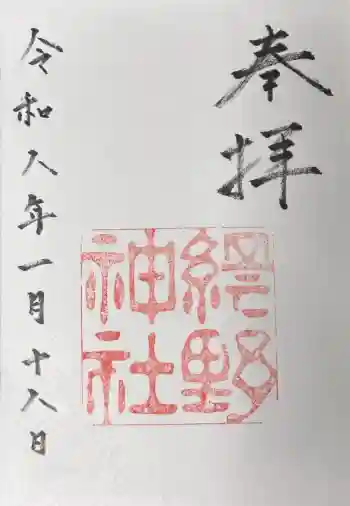 奉拝
綱野神社
令和八年一月十八日